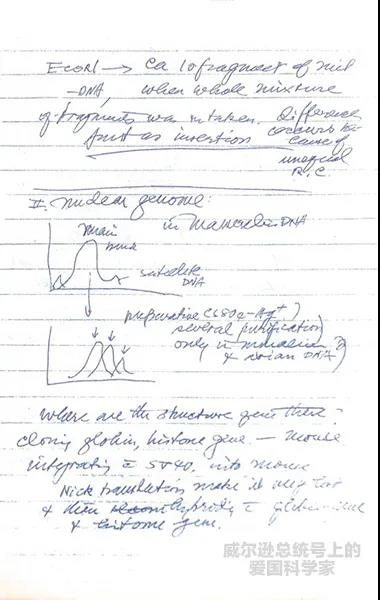 EcoRI → ca 10 fragment of mit
-DNA, when whole mixture
of fragments was taken. difference
just as insertion occurs be-
cause of
unequal
R.C.
II. nuclear genome:
main in mammalian DNA
satellite
DNA
preparative Cs2SO4-Ag+)
several purification
only in
& avian DNA)
Where are the structure gene there
cloning globin, histone gene — mouse
integrating SV40. into mouse
Nick translation make it very hot
& then hybridiz
& histone gene.
威尔逊总统号上的
爱国科学家